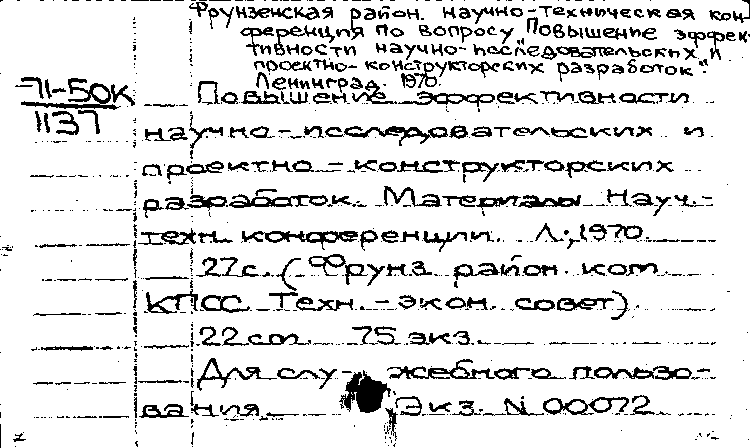 Фрунзенская район. научно-техническая кон-
ференция по вопросу „Повышение эффек-
тивности научно-исследовательских и
проектно-конструкторских разработок".
Ленинград. 1970.
71-50К
1137
Повышение эффективности
научно-исследовательских и
проектно-конструкторских
разработок. Материалы Науч.-
техн. конференции. Л., 1970.
27с. (Фрунз. район. ком.
КПСС. Техн.-экон. совет).
22 см. 75 экз.
Для служебного пользо-
вания. Экз. N 00072